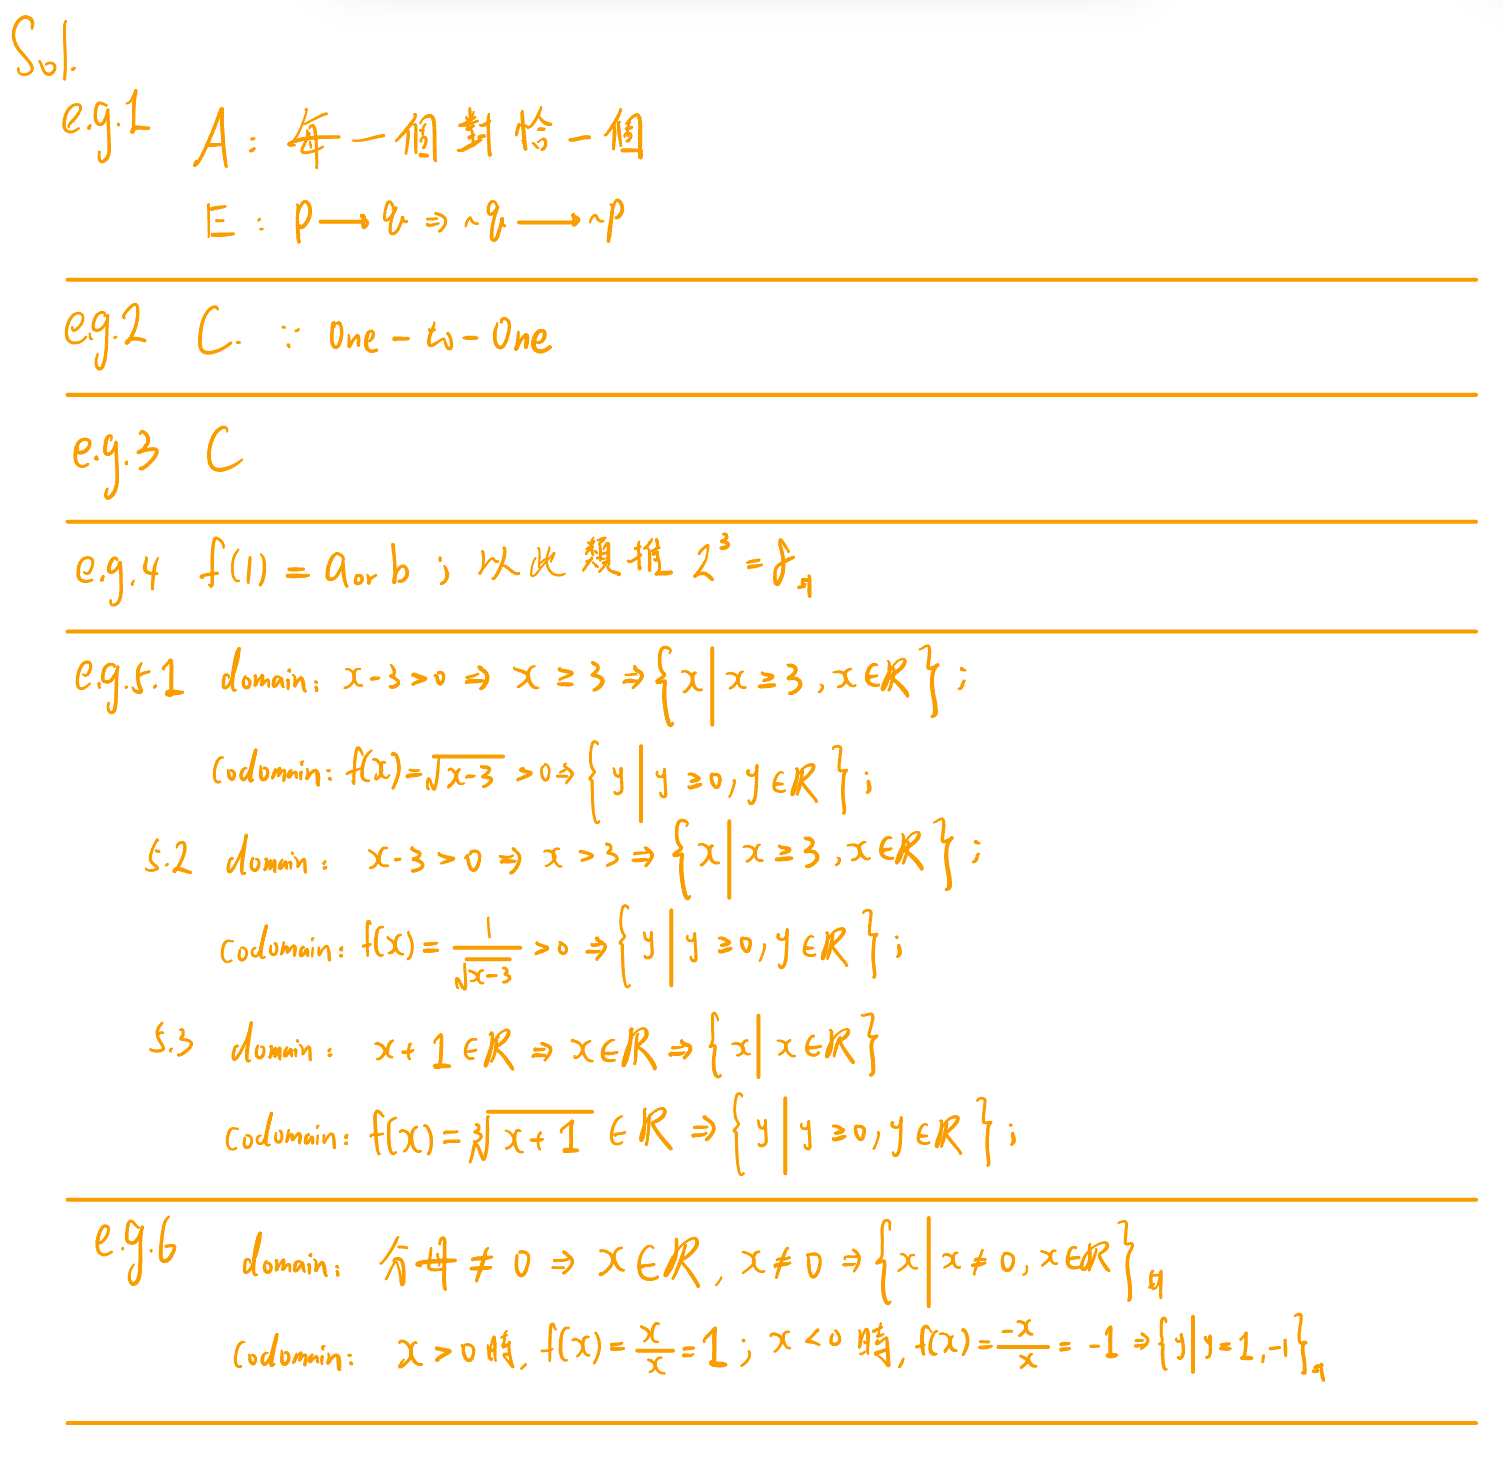 Sol.
e.g.1 A: 每一個對恰一個
E: p→q⇒~q→~p
e.g.2 C. ∵ One-to-One
e.g.3 C
e.g.4 f(1)=a or b ; 以此類推 2³=8
e.g.5.1 domain: x-3>0 ⇒ x≥3 ⇒ {x|x≥3, x∈ℝ};
codomain: f(x)=√(x-3) >0⇒ {y|y≥0, y∈ℝ};
5.2 domain: x-3>0 ⇒ x>3 ⇒ {x|x≥3, x∈ℝ};
codomain: f(x)=1/√(x-3) >0 ⇒ {y|y≥0, y∈ℝ};
5.3 domain: x+1∈ℝ ⇒ x∈ℝ ⇒ {x|x∈ℝ}
codomain: f(x)=∛(x+1) ∈ℝ ⇒ {y|y≥0, y∈ℝ};
e.g.6 domain: 分母≠0 ⇒ x∈ℝ, x≠0 ⇒ {x|x≠0, x∈ℝ}
codomain: x>0時, f(x)=x/x=1; x<0時, f(x)=-x/x=-1 ⇒ {y|y=1,-1}